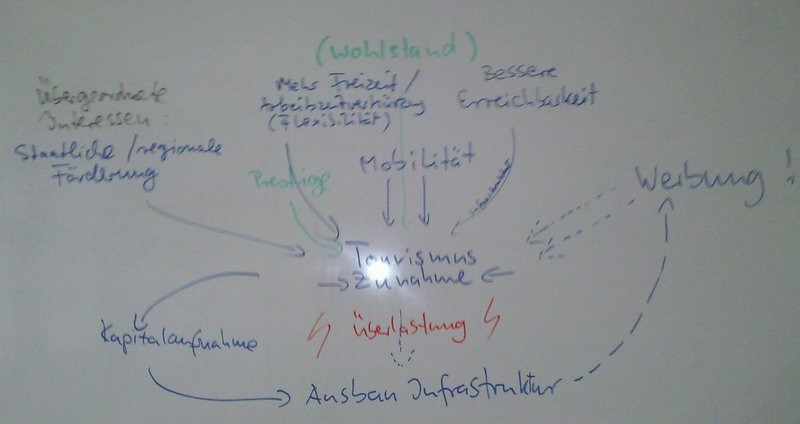 (Wohlstand)
Übergeordnete
Interessen:
Staatliche / regionale
Förderung
Mehr Freizeit /
Arbeitszeitverkürzung
(Flexibilität)
Bessere
Erreichbarkeit
Prestige
Mobilität
Werbung!
Tourismus
Zunahme
Kapitalaufnahme
Überlastung
Ausbau Infrastruktur